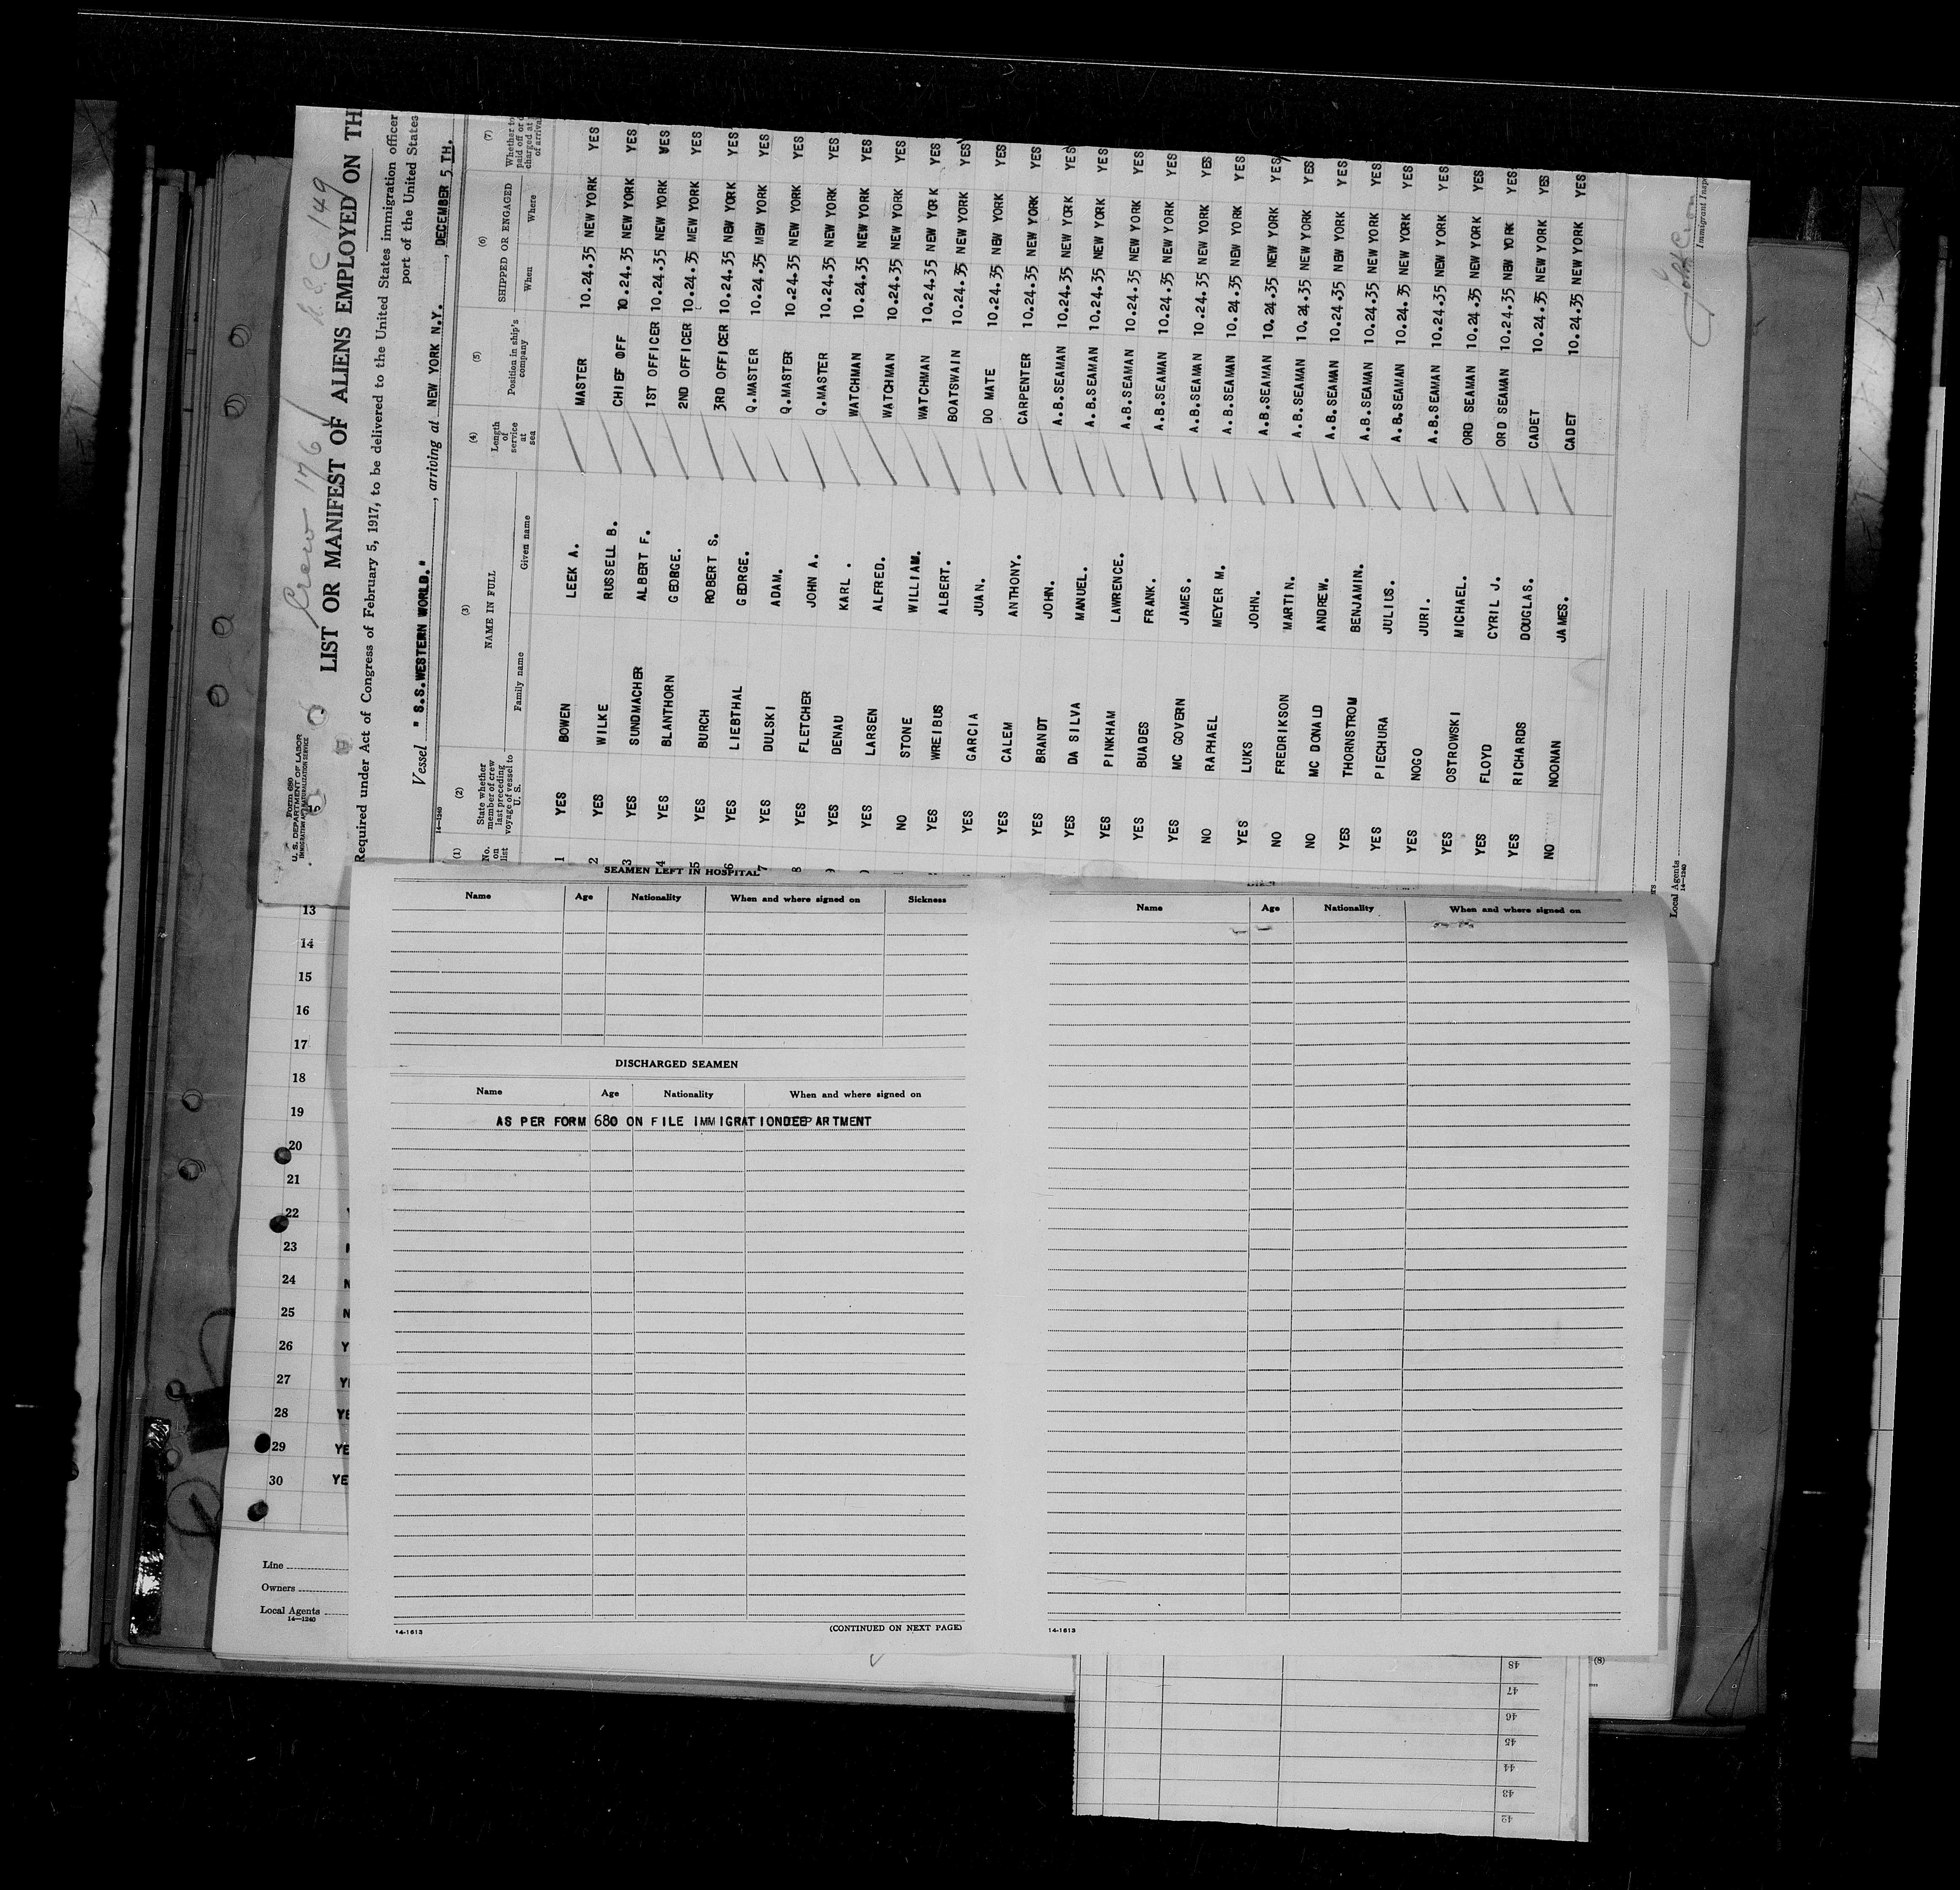 Crew 176
U.S.C 149
Form 680
U. S. DEPARTMENT OF LABOR
IMMIGRATION AND NATURALIZATION SERVICE
LIST OR MANIFEST OF ALIENS EMPLOYED ON TH
Required under Act of Congress of February 5, 1917, to be delivered to the United States immigration officer
port of the United States
Vessel " S.S.WESTERN WORLD." , arriving at NEW YORK N.Y. , DECEMBER 5 TH.
14—1240
(1) (2) (3) (4) (5) (6) (7)
No. on list
State whether member of crew last preceding voyage of vessel to U. S.
NAME IN FULL
Family name Given name
Length of service at sea
Position in ship's company
SHIPPED OR ENGAGED
When Where
Whether to paid off or charged at of arrival
1 YES BOWEN LEEK A. MASTER 10.24.35 NEW YORK YES
2 YES WILKE RUSSELL B. CHIEF OFF 10.24.35 NEW YORK YES
3 YES SUNDMACHER ALBERT F. 1ST OFFICER 10.24.35 NEW YORK YES
4 YES BLANTHORN GEORGE. 2ND OFFICER 10.24.35 MEW YORK YES
5 YES BURCH ROBERT S. 3RD OFFICER 10.24.35 NEW YORK YES
6 YES LIEBTHAL GEORGE. Q.MASTER 10.24.35 MEW YORK YES
7 YES DULSKI ADAM. Q.MASTER 10.24.35 NEW YORK YES
8 YES FLETCHER JOHN A. Q.MASTER 10.24.35 NEW YORK YES
9 YES DENAU KARL . WATCHMAN 10.24.35 NEW YORK YES
YES LARSEN ALFRED. WATCHMAN 10.24.35 NEW YORK YES
NO STONE WILLIAM. WATCHMAN 10.24.35 NEW YORK YES
YES WREIBUS ALBERT. BOATSWAIN 10.24.35 NEW YORK YES
YES GARCIA JUAN. DO MATE 10.24.35 NEW YORK YES
YES CALEM ANTHONY. CARPENTER 10.24.35 NEW YORK YES
YES BRANDT JOHN. A.B.SEAMAN 10.24.35 NEW YORK YES
YES DA SILVA MANUEL. A.B.SEAMAN 10.24.35 NEW YORK YES
YES PINKHAM LAWRENCE. A.B.SEAMAN 10.24.35 NEW YORK YES
YES BUADES FRANK. A.B.SEAMAN 10.24.35 NEW YORK YES
YES MC GOVERN JAMES. A.B.SEAMAN 10.24.35 NEW YORK YES
NO RAPHAEL MEYER M. A.B.SEAMAN 10.24.35 NEW YORK YES
YES LUKS JOHN. A.B.SEAMAN 10.24.35 NEW YORK YES
NO FREDRIKSON MARTIN. A.B.SEAMAN 10.24.35 NEW YORK YES
NO MC DONALD ANDREW. A.B.SEAMAN 10.24.35 NEW YORK YES
YES THORNSTROM BENJAMIN. A.B.SEAMAN 10.24.35 NEW YORK YES
YES PIECHURA JULIUS. A.B.SEAMAN 10.24.35 NEW YORK YES
YES NOGO JURI. A.B.SEAMAN 10.24.35 NEW YORK YES
YES OSTROWSKI MICHAEL. ORD SEAMAN 10.24.35 NEW YORK YES
YES FLOYD CYRIL J. ORD SEAMAN 10.24.35 NEW YORK YES
YES RICHARDS DOUGLAS. CADET 10.24.35 NEW YORK YES
NO NOONAN JAMES. CADET 10.24.35 NEW YORK YES
Local Agents
14—1240
Immigrant Inspe
SEAMEN LEFT IN HOSPITAL
Name Age Nationality When and where signed on Sickness
DISCHARGED SEAMEN
Name Age Nationality When and where signed on
AS PER FORM 680 ON FILE IMMIGRATIONDEEP ARTMENT
14-1613
(CONTINUED ON NEXT PAGE)
Name Age Nationality When and where signed on
14-1613
13
14
15
16
17
18
19
20
21
22
23
24 N
25 N
26 Y
27 Y
28 YE
29 YE
30 YE
Line
Owners
Local Agents
14—1240
(8)
48
47
46
45
44
43
42